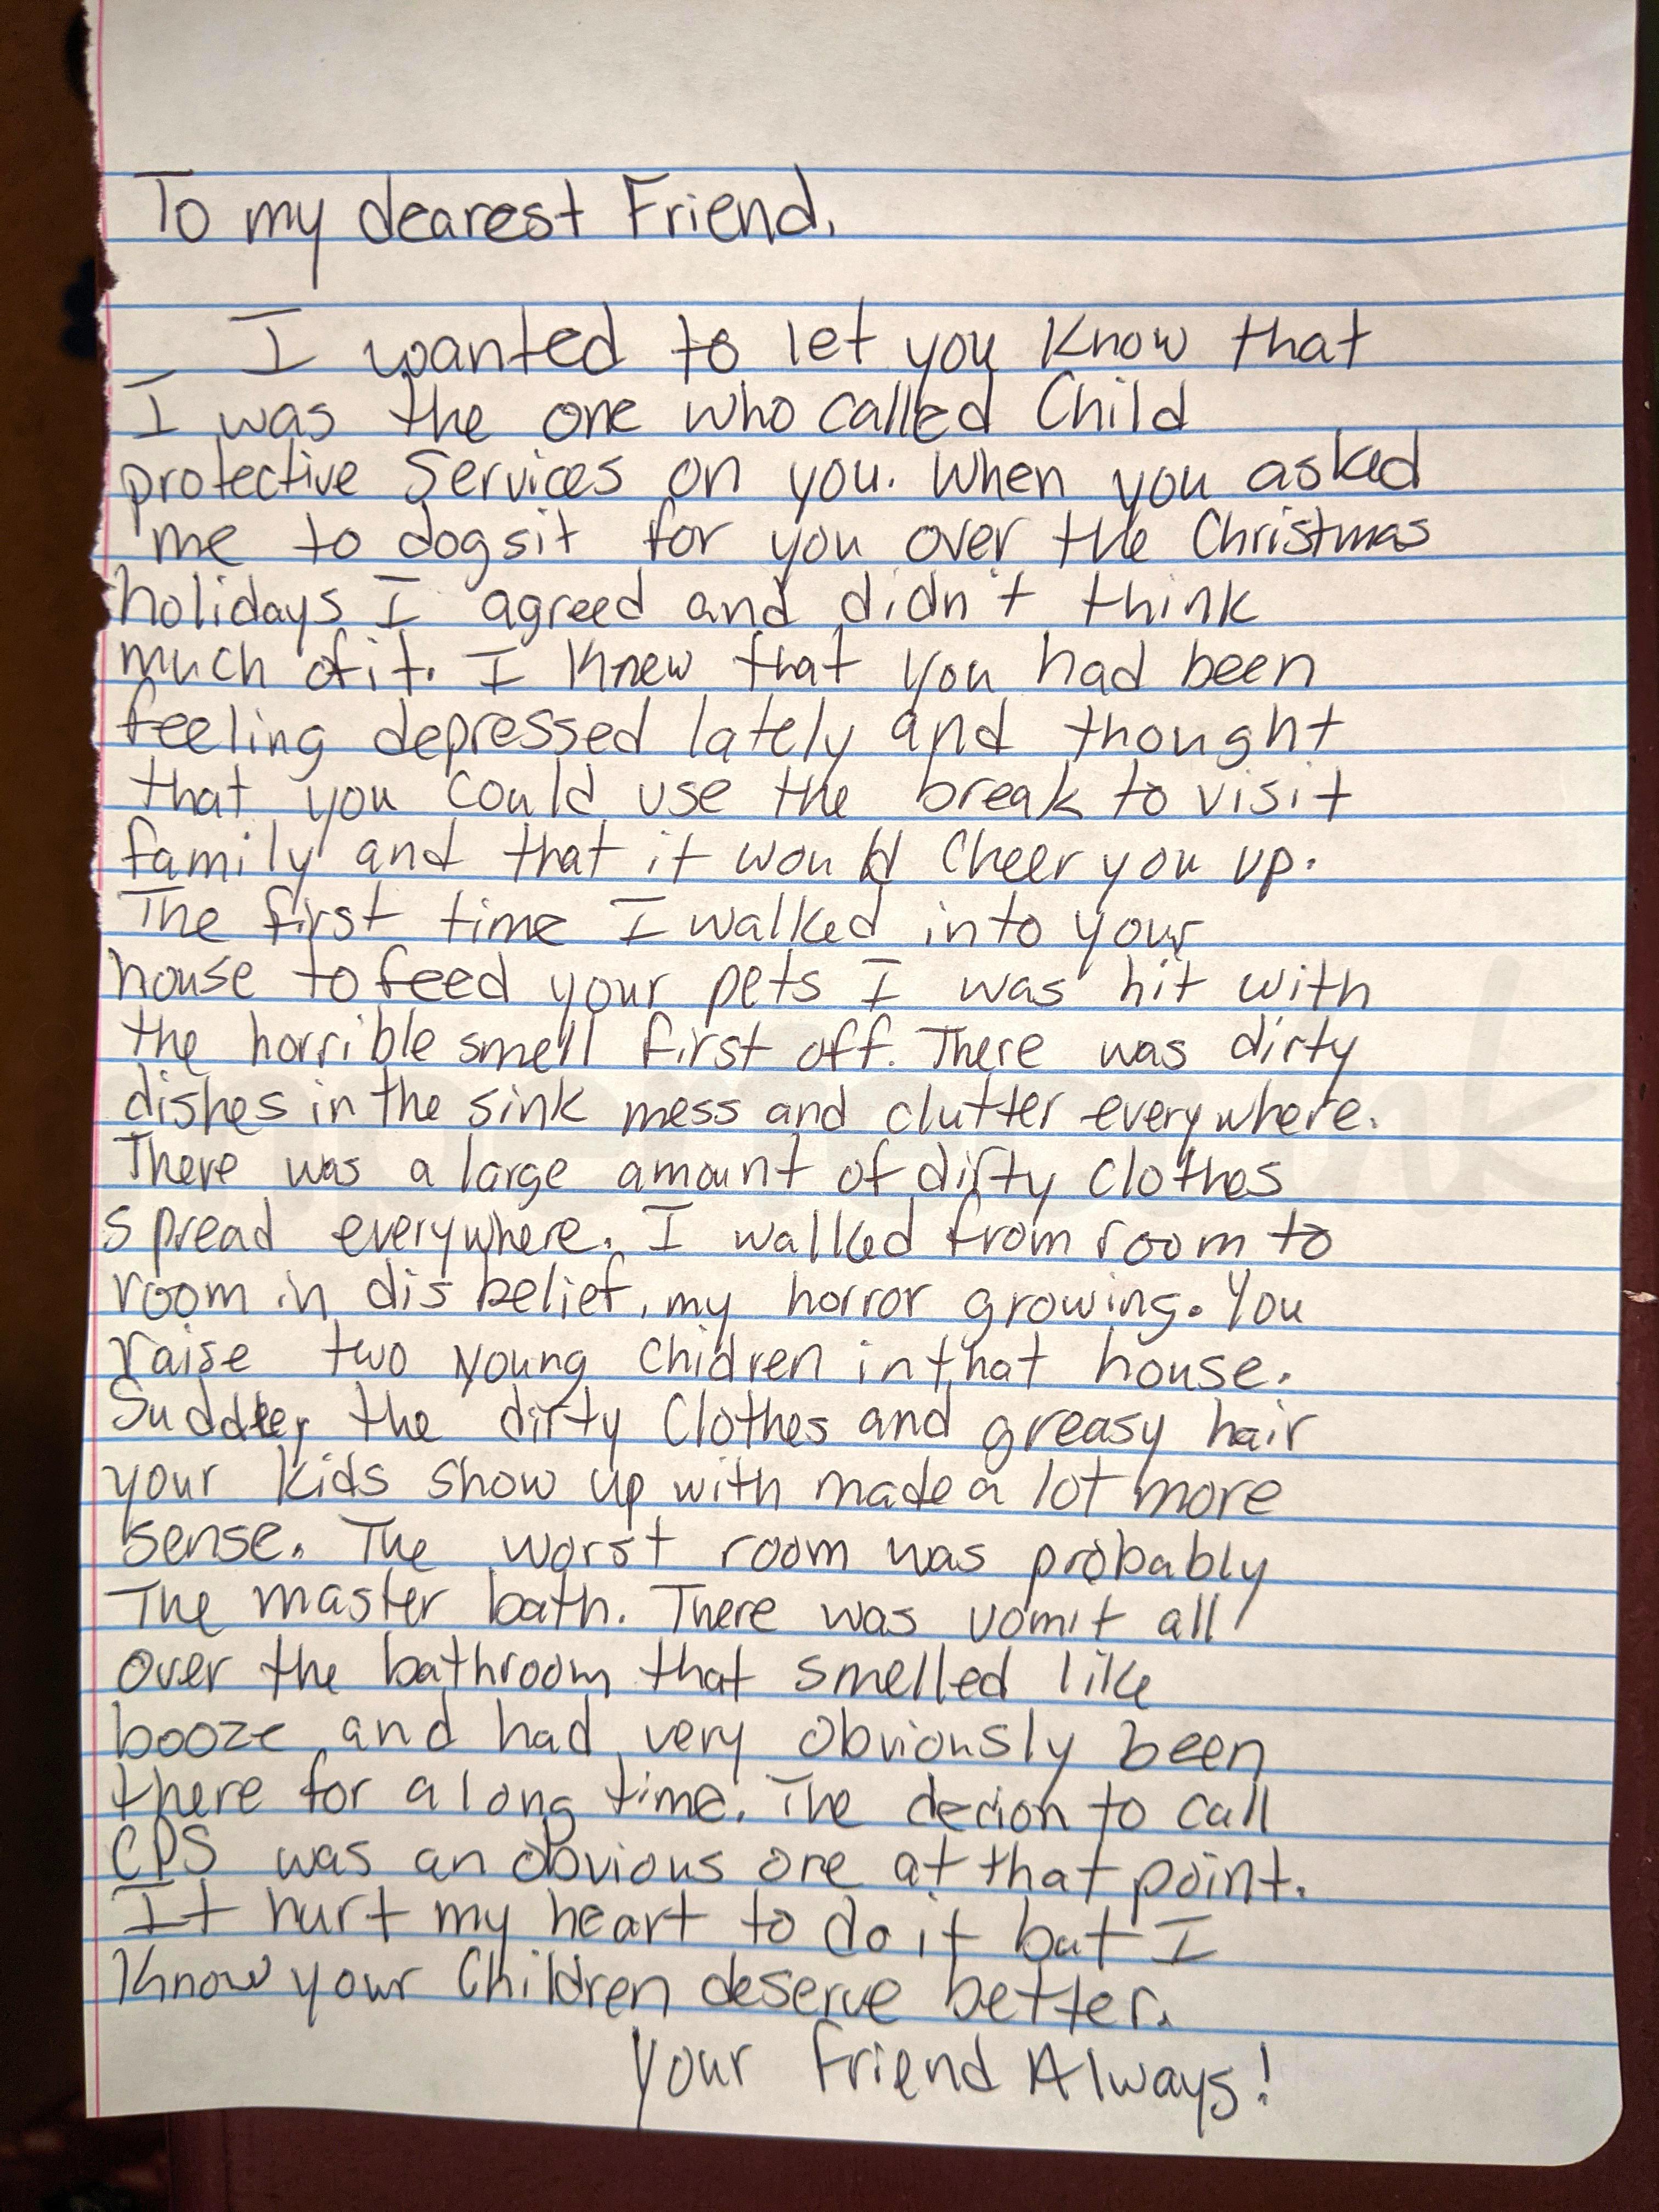 To my dearest Friend,
I wanted to let you know that
I was the one who called Child
protective Services on you. When you asked
me to dogsit for you over the Christmas
holidays I agreed and didn't think
much of it. I knew that you had been
feeling depressed lately and thought
that you could use the break to visit
family and that it would cheer you up.
The first time I walked into your
house to feed your pets I was hit with
the horrible smell first off. There was dirty
dishes in the sink mess and clutter everywhere.
There was a large amount of dirty clothes
spread everywhere. I walked from room to
room in disbelief, my horror growing. You
raise two young chidren in that house.
the dirty Clothes and greasy hair
your kids show up with made a lot more
sense. The worst room was probably
The master bath. There was vomit all
over the bathroom that smelled like
booze and had very obviously been
there for a long time. The decion to call
CPS was an obvious one at that point.
It hurt my heart to do it but I
Know your Children deserve better.
Your Friend Always!